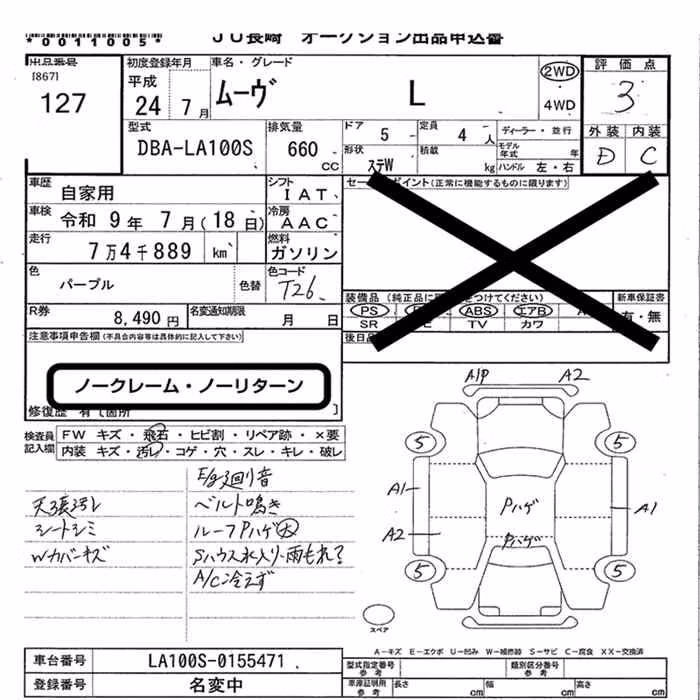 *0011005*
JU長崎 オークション出品申込書
出品番号
[867]
127
初度登録年月
平成
24 年 7 月
車名・グレード
ムーヴ L
2WD
・
4WD
評価点
3
外装 内装
D C
型式
DBA-LA100S
排気量
660
CC
ドア
5
定員
4 人
形状
ステW
積載
kg
ディーラー・並行
モデル年式 年
ハンドル 左・右
車歴
自家用
シフト
IAT
車検
令和 9年 7月(18日)
冷房
AAC
走行
7万4千889 km
燃料
ガソリン
色
パープル
色替
色コード
T26
R券
8,490 円
名変通知期限
月 日
セー ポイント(正常に機能するものに限ります)
装備品 (純正品に つけてください)
新車保証書
有・無
PS ABS エアB
SR TV カワ
後日品
注意事項申告欄(不具合内容等は具体的に記入して下さい)
ノークレーム・ノーリターン
修復歴 有[箇所 ]
検査員
記入欄
FW キズ・飛石・ヒビ割・リペア跡・×要
内装 キズ・汚レ・コゲ・穴・スレ・キレ・破レ
E/g廻り音
天張汚レ
ベルト鳴き
シートシミ
ルーフPハゲ大
Wカバーキズ
Sハウス水入り・雨もれ?
A/C冷えず
A1P A2
5 5
A1
A2
Pハゲ
Pハゲ
A1
5 5
スペア
A-キズ E-エクボ U-凹み W-補修跡 S-サビ C-腐食 XX-交換済
車台番号
LA100S-0155471
登録番号
名変中
型式指定番号
参考
類別区分番号
参考
車庫証明用
参考
長さ cm
幅 cm
高さ cm